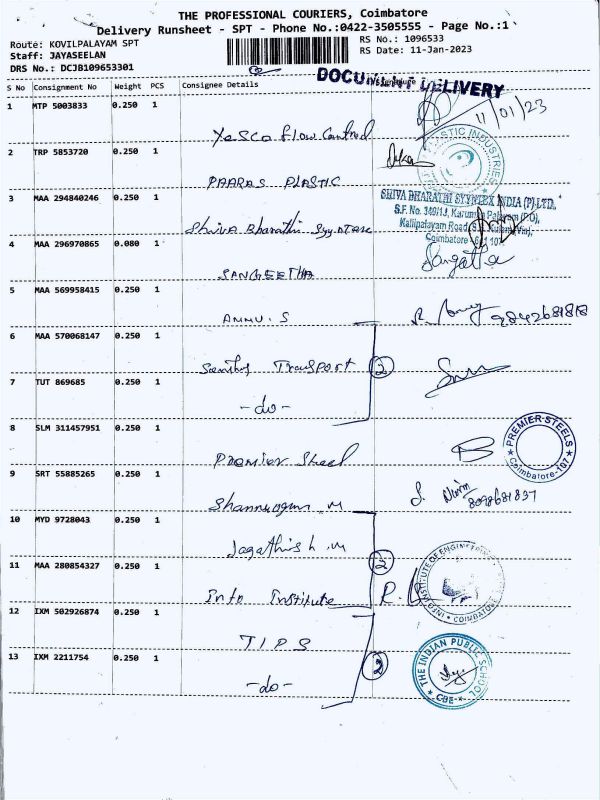 THE PROFESSIONAL COURIERS, Coimbatore
Delivery Runsheet - SPT - Phone No.:0422-3505555 - Page No.:1
Route: KOVILPALAYAM SPT
RS No.: 1096533
Staff: JAYASEELAN
RS Date: 11-Jan-2023
DRS No.: DCJB109653301
DOCUMENT DELIVERY
S No Consignment No Weight PCS Consignee Details
11/01/23
1 MTP 5003833 0.250 1
Yesco Flow Control
2 TRP 5853720 0.250 1
PAARAS PLASTIC
PLASTIC INDUSTRIES
3 MAA 294840246 0.250 1
Shiva Bharathi
SHIVA BHARATHI SYYNTEX INDIA (P) LTD.,
Kallipalayam Road
Coimbatore
4 MAA 296970865 0.080 1
SANGEETHA
Sangeetha
5 MAA 569958415 0.250 1
AMMU.S
9842681818
6 MAA 570068147 0.250 1
Santhy Transport
2
7 TUT 869685 0.250 1
-do-
8 SLM 311457951 0.250 1
Premier Steel
PREMIER STEELS
Coimbatore-107
9 SRT 55885265 0.250 1
Shanmugam M
8098681837
10 MYD 9728043 0.250 1
Jagathish M
2
11 MAA 280854327 0.250 1
Info Institute
INSTITUTE OF ENGINEERING
COIMBATORE
12 IXM 502926874 0.250 1
T I P S
2
13 IXM 2211754 0.250 1
-do-
THE INDIAN PUBLIC SCHOOL
CBE